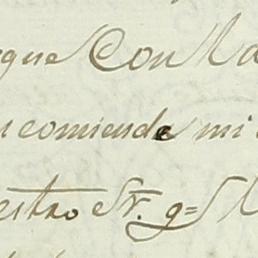 que Con la
comiende mi
estro Sr. q=